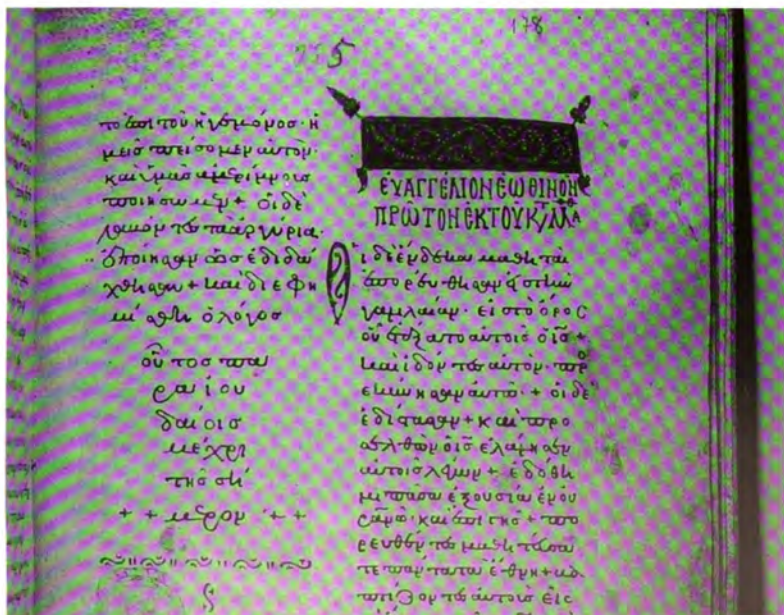 178
5
το ἐπὶ τοῦ ἡγεμόνος· ἡ
μεῖς πείσομεν αὐτὸν·
καὶ ὑμᾶς ἀμερίμνους
ποιήσωμεν + οἱ δὲ
λαβόντες τὰ ἀργύρια·
ἐποίησαν ὡς ἐδιδά
χθησαν + καὶ διεφη
μίσθη ὁ λόγος
οὗτος πα
ρα ἰου
δαίοις
μέχρι
τῆς σή
+ + μερον + +
ΕΥΑΓΓΕΛΙΟΝ ΕΩΘΙΝΟΝ
ΠΡΩΤΟΝ ΕΚ ΤΟΥ Κ/Τ ΜΑΘ
Οἱ δὲ ἕνδεκα μαθηταὶ
ἐπορεύθησαν εἰς τὴν
γαλιλαίαν· εἰς τὸ ὄρος
οὗ ἐτάξατο αὐτοῖς ὁ ι̅ς̅ +
καὶ ἰδόντες αὐτὸν· προσ
εκύνησαν αὐτῷ + οἱ δὲ
ἐδίστασαν + καὶ προσ
ελθὼν ὁ ι̅ς̅ ἐλάλησεν
αὐτοῖς λέγων + ἐδόθη
μοι πᾶσα ἐξουσία ἐν οὐ
ρανῷ· καὶ ἐπὶ τῆς + πο
ρευθέντες μαθητεύσα
τε πάντα τὰ ἔθνη + βα
πτίζοντες αὐτοὺς εἰς